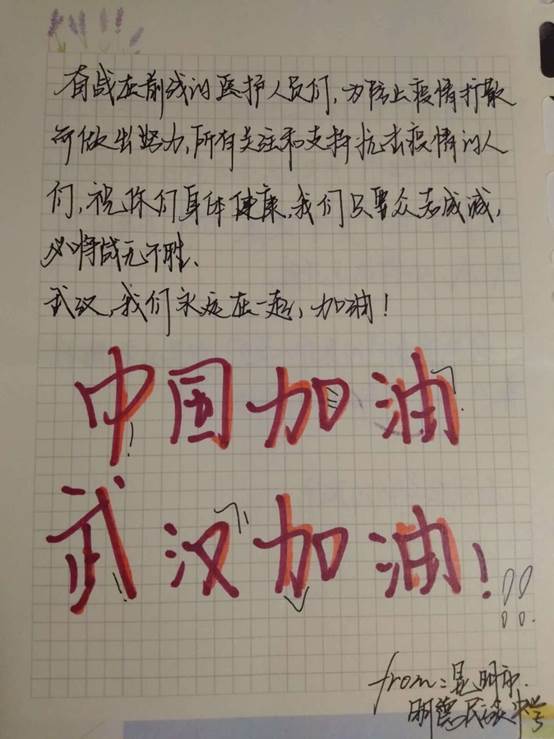 奋战在前线的医护人员们，为防止疫情扩散
而做出努力，所有关注和支持抗击疫情的人
们，祝你们身体健康，我们只要众志成城，
必将战无不胜、
武汉，我们永远在一起，加油！
中国加油
武汉加油！!!
from：昆明市．
明德民族中学